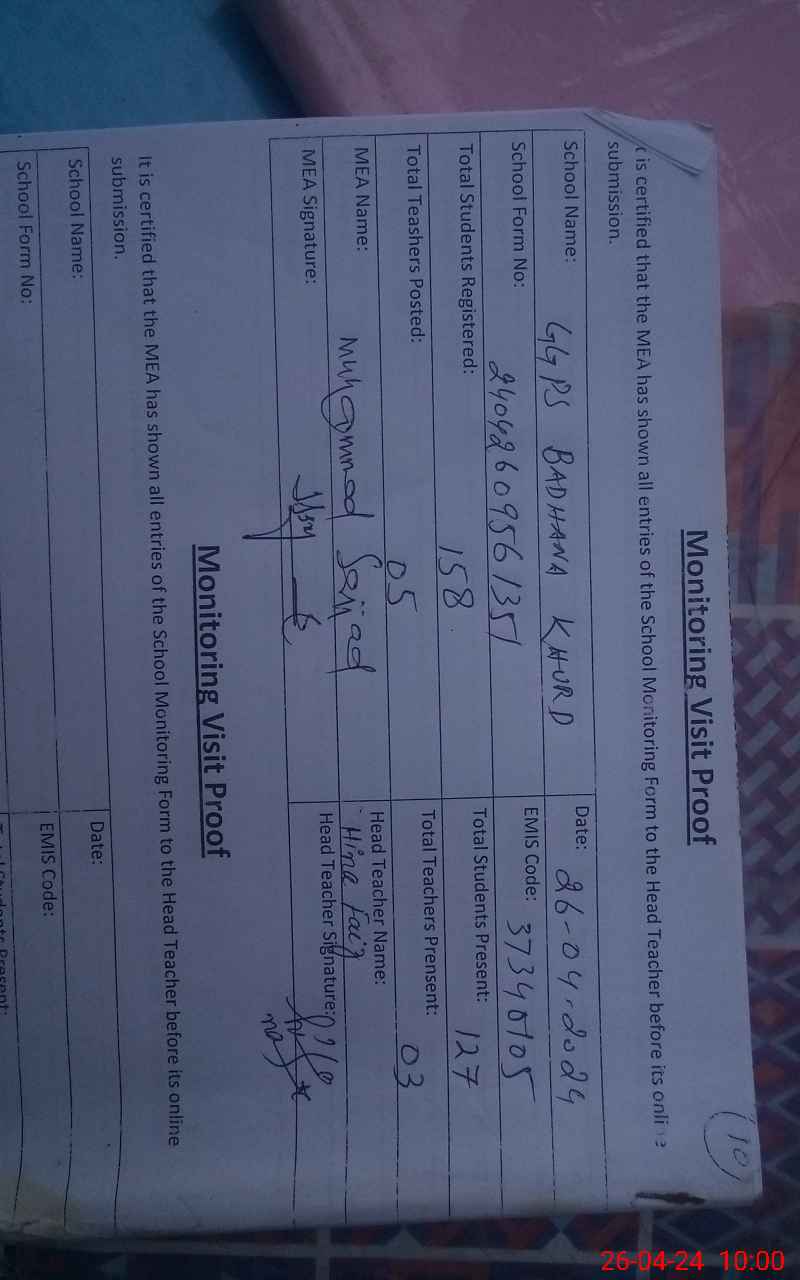 (10)
Monitoring Visit Proof
t is certified that the MEA has shown all entries of the School Monitoring Form to the Head Teacher before its online
submission.
School Name: GGPS BADHANA KHURD Date: 26-04-2024
School Form No: 24042609561351 EMIS Code: 37340105
Total Students Registered: 158 Total Students Present: 127
Total Teashers Posted: 05 Total Teachers Prensent: 03
MEA Name: Muhammad Sajjad Head Teacher Name: Hina Faiz
MEA Signature: Head Teacher Signature:
Monitoring Visit Proof
It is certified that the MEA has shown all entries of the School Monitoring Form to the Head Teacher before its online
submission.
School Name: Date:
School Form No: EMIS Code:
Total Students Present:
26-04-24 10:00